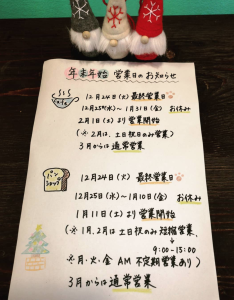 年末年始 営業日のお知らせ
cafe
12月24日(火) 最終営業日
12月25日(水)～1月31日(金) お休み
2月1日(土)より 営業開始
(※2月は、土日祝のみ営業)
3月からは通常営業
パンショップ
12月24日(火) 最終営業日
12月25日(水)～1月10日(金) お休み
1月11日(土)より 営業開始
(※1月、2月は土日祝のみ 短縮営業、
9:00-15:00
※月・火・金 AM 不定期営業あり)
3月からは通常営業